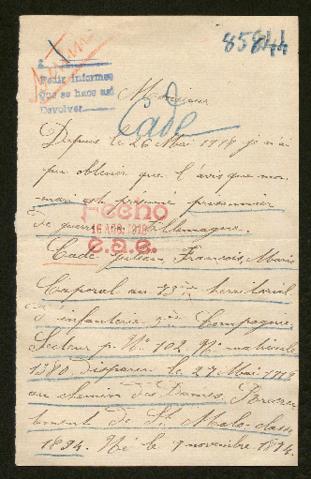 85844
Pedir informes
Que se hace así
Devolver
Monsieur
Cade
Depuis le 26 Mai 1918 je n'ai
pu obtenir que l'avis que mon
mari est présumé prisonnier
de guerre en Allemagne.
Fecho
e.a.c.
Cade François, Marie
Caporal au 73ème territorial
d'infanterie, Compagnie,
Secteur p. No 102. No matricule
1380, disparu le 27 Mai 1918
au chemin des Dames. Recru-
tement de St. Malo classe
1894. Né le 9 novembre 1874.